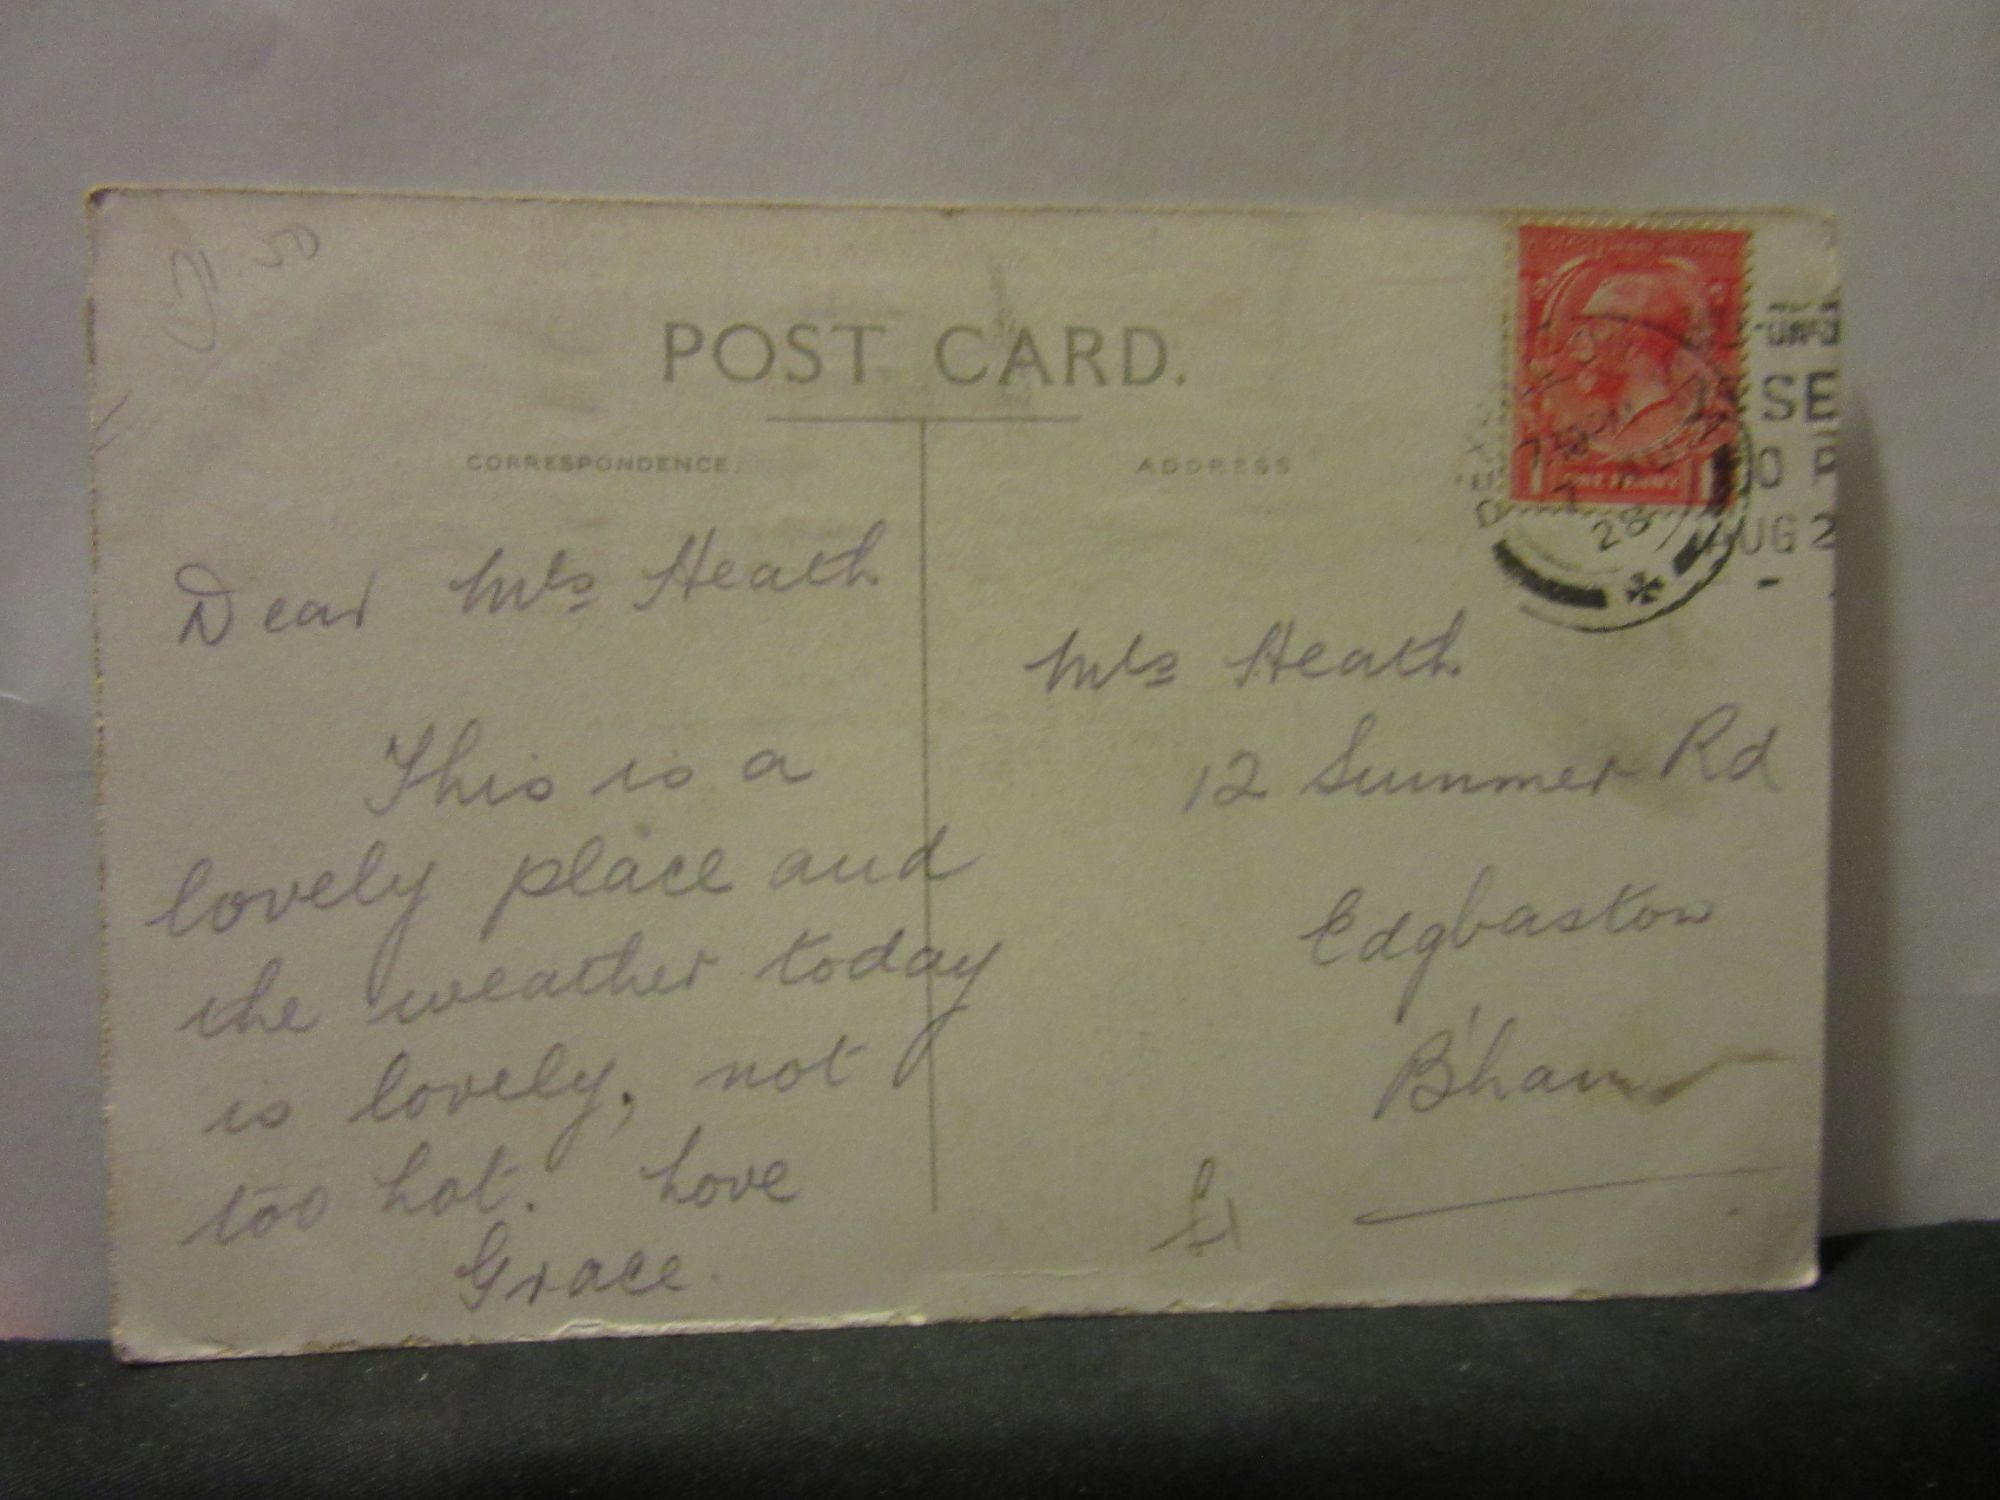 POST CARD.
CORRESPONDENCE.
ADDRESS
Dear Mrs Heath
This is a
lovely place and
the weather today
is lovely, not
too hot. Love
Grace.
Mrs Heath
12 Summer Rd
Edgbaston
B'ham
£1
ONE PENNY
28
SE
AUG 2